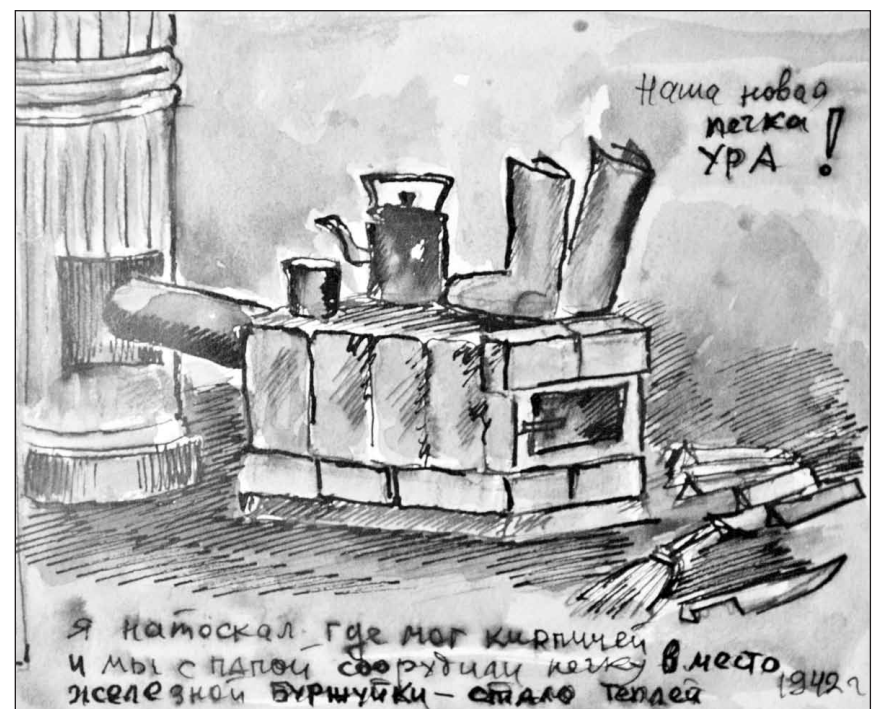 Наша новая
печка
УРА!
Я натоскал где мог кирпичей
и мы с папой соорудили печку в место
железной буржуйки – стало теплей
1942 г